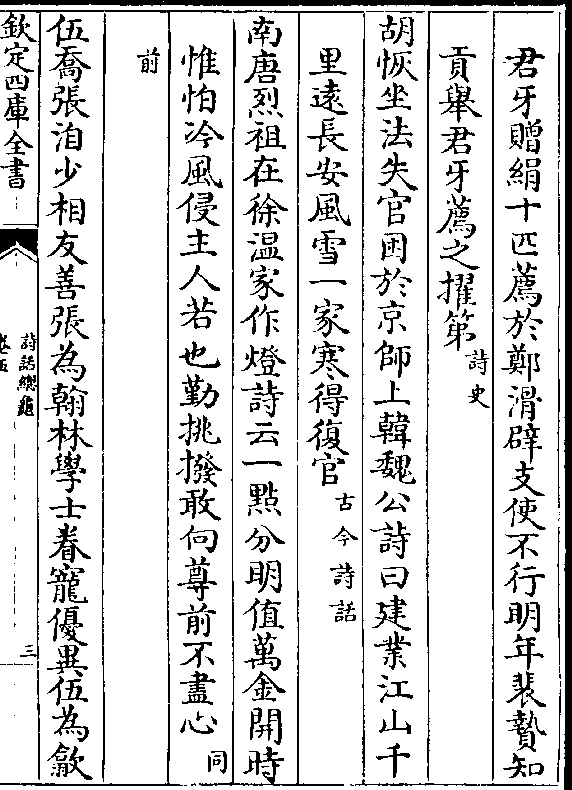 君牙贈絹十匹薦於鄭滑辟支使不行明年裴贄知
貢舉君牙薦之擢第詩史
胡恢坐法失官困於京師上韓魏公詩曰建業江山千
里遠長安風雪一家寒得復官古今詩話
南唐烈祖在徐温家作燈詩云一點分明值萬金開時
惟怕冷風侵主人若也勤挑撥敢向尊前不盡心同
前
伍喬張洎少相友善張為翰林學士眷寵優異伍為歙
欽定四庫全書
詩話總龜
卷五
三